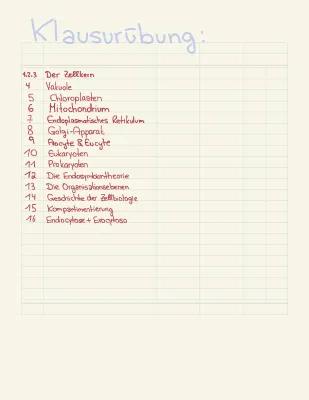 Klausurübung:
1.2.3 Der Zellkern
4 Vakuole
5 Chloroplasten
6 Mitochondrium
7 Endoplasmatisches Retikulum
8 Golgi-Apparat
9 Procyte & Eucyte
10 Eukaryoten
11 Prokaryoten
12 Die Endosymbiontheorie
13 Die Organisationsebenen
14 Geschichte der Zellbiologie
15 Kompartimentierung
16 Endocytose + Exocytose